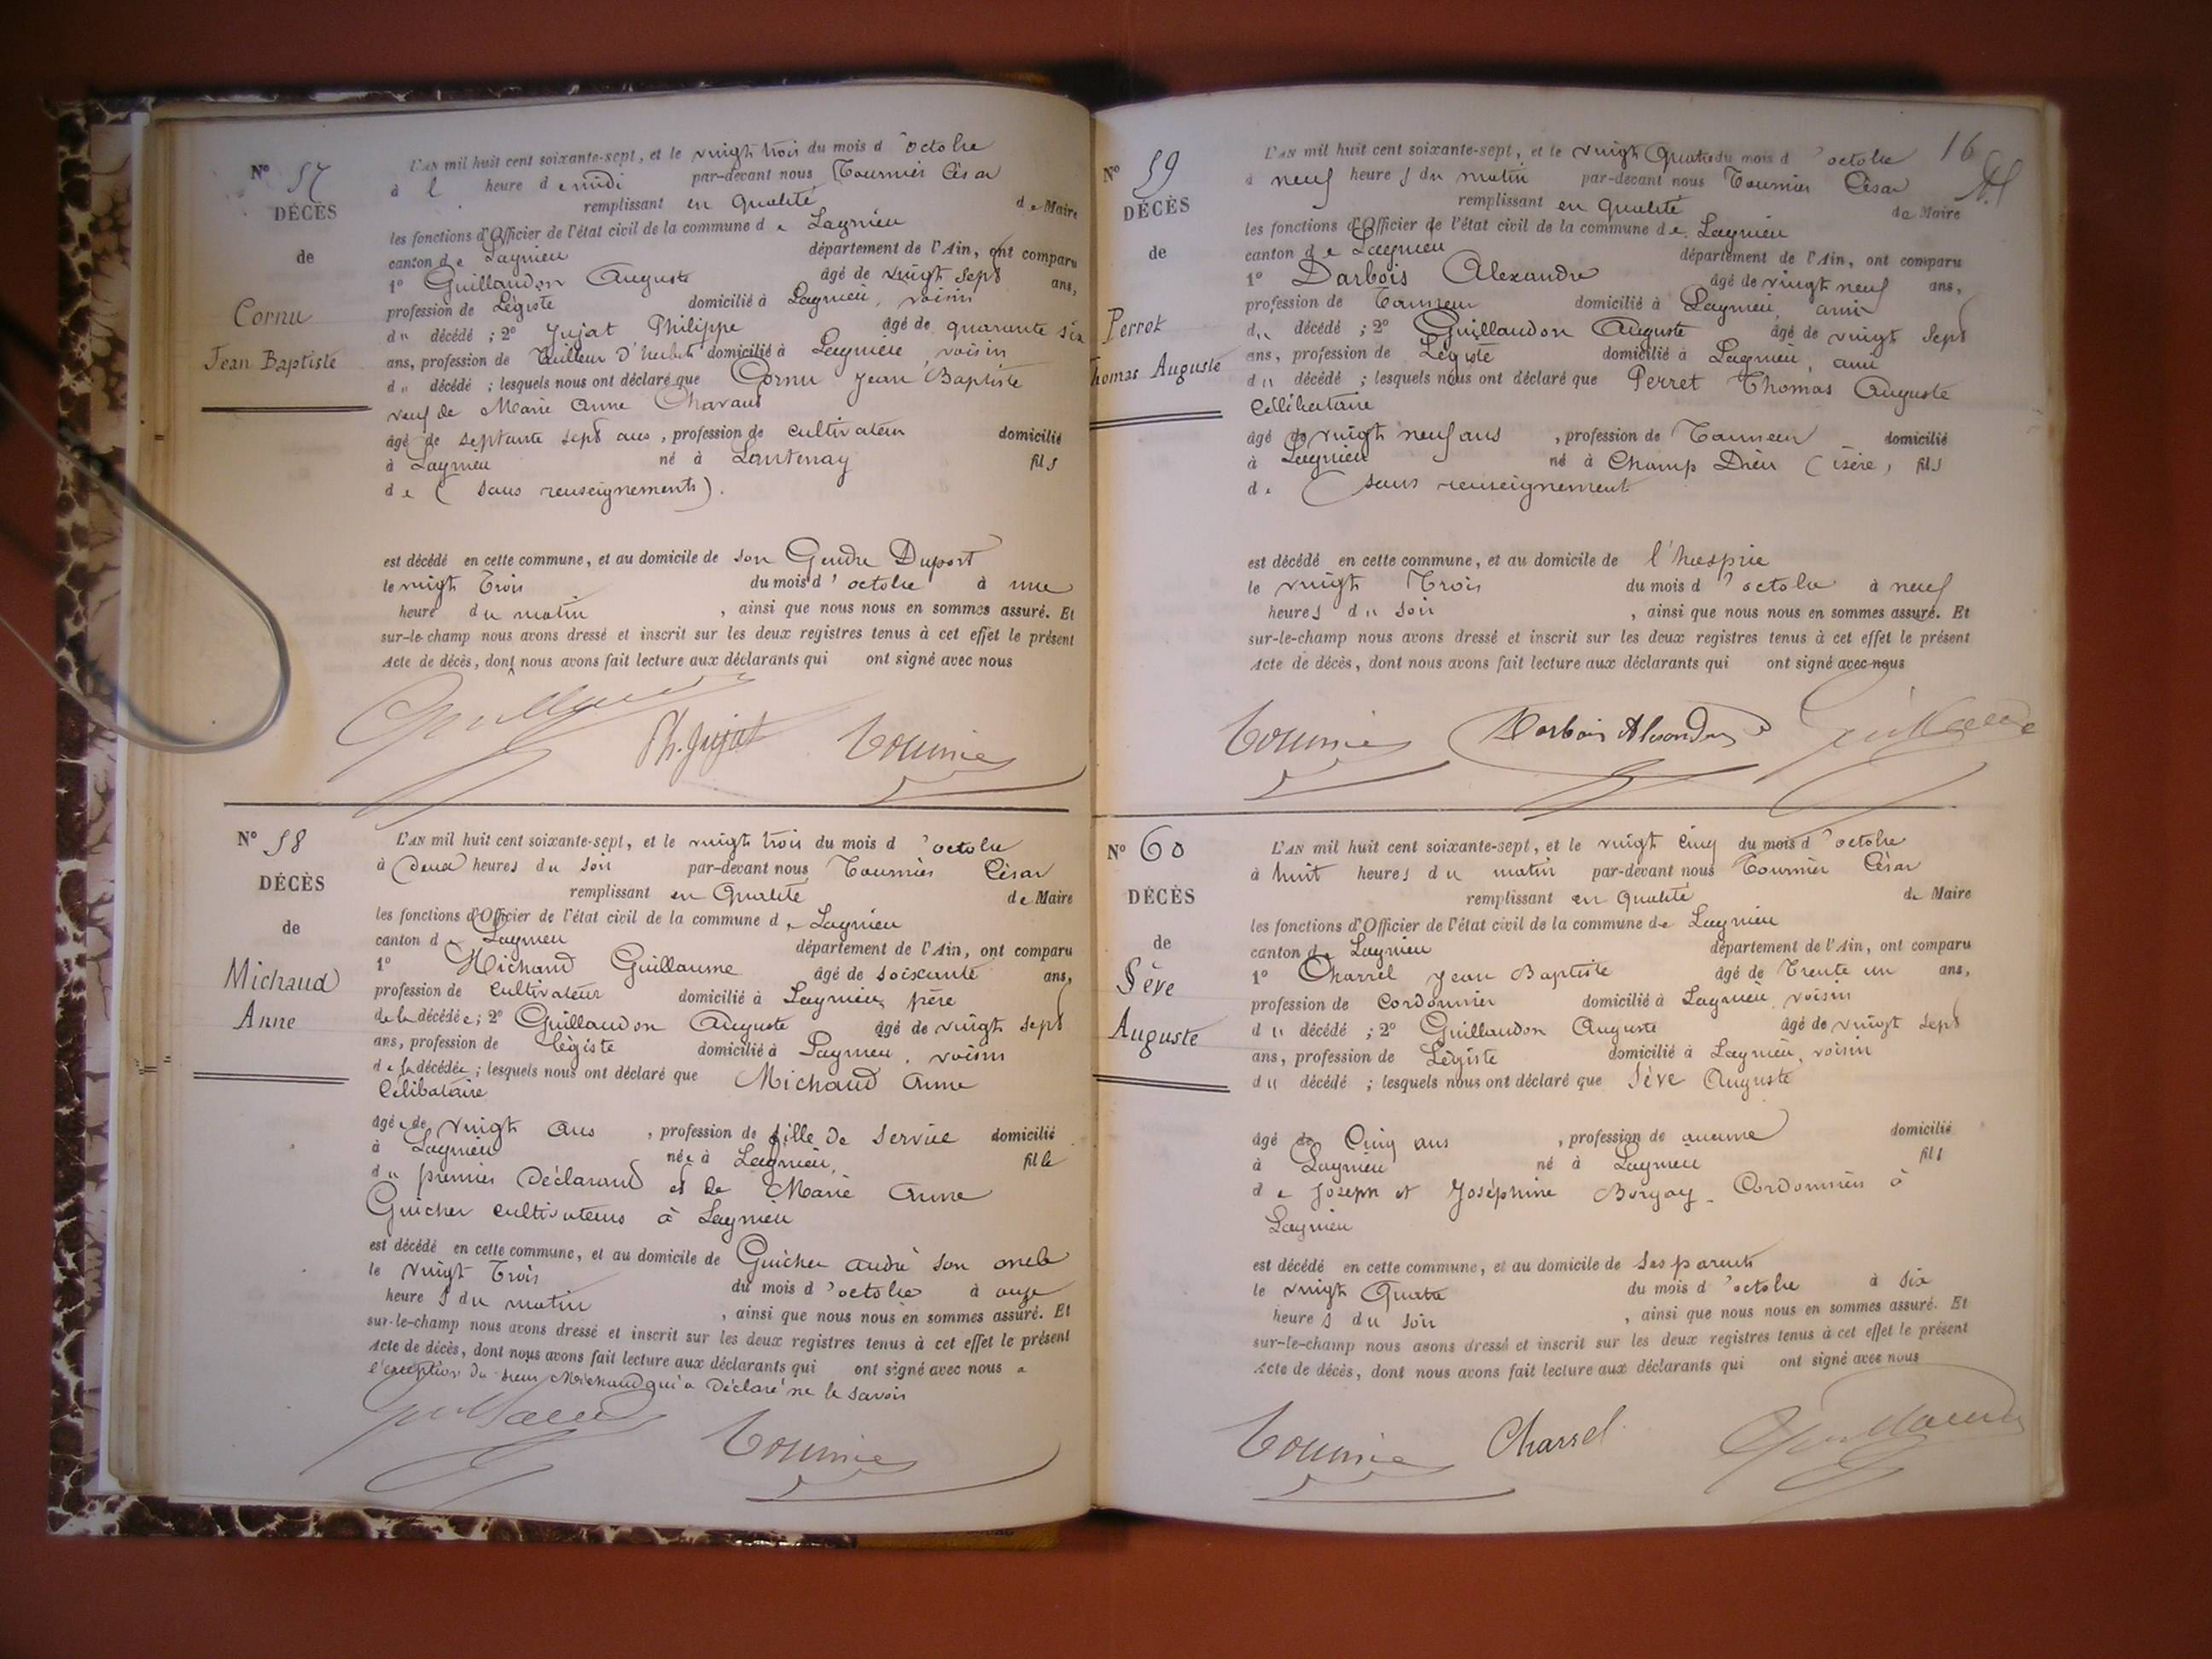 N° 57
DÉCÈS
de
Cornu
Jean Baptiste
L'AN mil huit cent soixante-sept, et le vingt trois du mois d'octobre
à l heure de midi par-devant nous Tournier César
remplissant en qualité de Maire
les fonctions d'Officier de l'état civil de la commune de Lagnieu
canton de Lagnieu département de l'Ain, ont comparu
1° Guillaudon Auguste âgé de vingt sept ans,
profession de Légiste domicilié à Lagnieu, voisin
du décédé ; 2° Jujat Philippe âgé de quarante six
ans, profession de Tailleur d'habits domicilié à Lagnieu, voisin
du décédé ; lesquels nous ont déclaré que Cornu Jean Baptiste
veuf de Marie Anne
âgé de septante sept ans, profession de cultivateur domicilié
à Lagnieu né à Lantenay fils
de (sans renseignements).
est décédé en cette commune, et au domicile de son Gendre Duport
le vingt Trois du mois d'octobre à une
heure du matin, ainsi que nous nous en sommes assuré. Et
sur-le-champ nous avons dressé et inscrit sur les deux registres tenus à cet effet le présent
Acte de décès, dont nous avons fait lecture aux déclarants qui ont signé avec nous
Ph. Jujat Tournier
N° 58
DÉCÈS
de
Michaud
Anne
L'AN mil huit cent soixante-sept, et le vingt trois du mois d'octobre
à Deux heures du soir par-devant nous Tournier César
remplissant en Qualité de Maire
les fonctions d'Officier de l'état civil de la commune de Lagnieu
canton de Lagnieu département de l'Ain, ont comparu
1° Michaud Guillaume âgé de soixante ans,
profession de cultivateur domicilié à Lagnieu, père
de la décédée; 2° Guillaudon Auguste âgé de vingt sept
ans, profession de légiste domicilié à Lagnieu, voisin
de la décédée ; lesquels nous ont déclaré que Michaud Anne
Célibataire
âgée de vingt ans, profession de fille de service domicilié
à Lagnieu née à Lagnieu, fille
du premier Déclarant et de Marie Anne
Guicher cultivateurs à Lagnieu
est décédé en cette commune, et au domicile de Guicher andré son oncle
le vingt Trois du mois d'octobre à onze
heures du matin, ainsi que nous nous en sommes assuré. Et
sur-le-champ nous avons dressé et inscrit sur les deux registres tenus à cet effet le présent
Acte de décès, dont nous avons fait lecture aux déclarants qui ont signé avec nous a
l'exception du sieur Michaud qui a Déclaré ne le savoir
Tournier
16
N° 59
DÉCÈS
de
Perrot
Thomas Auguste
L'AN mil huit cent soixante-sept, et le vingt Quatre du mois d'octobre
à neuf heures du matin par-devant nous Tournier César
remplissant en qualité de Maire
les fonctions d'Officier de l'état civil de la commune de Lagnieu
canton de Lagnieu département de l'Ain, ont comparu
1° Darbois Alexandre âgé de vingt neuf ans,
profession de Tanneur domicilié à Lagnieu, ami
du décédé ; 2° Guillaudon Auguste âgé de vingt sept
ans, profession de Légiste domicilié à Lagnieu, ami
du décédé ; lesquels nous ont déclaré que Perret Thomas Auguste
Célibataire
âgé de vingt neuf ans, profession de Tanneur domicilié
à Lagnieu né à Champ Dieu (isère, fils
de (sans renseignement
est décédé en cette commune, et au domicile de l'hospice
le vingt Trois du mois d'octobre à neuf
heures du soir, ainsi que nous nous en sommes assuré. Et
sur-le-champ nous avons dressé et inscrit sur les deux registres tenus à cet effet le présent
Acte de décès, dont nous avons fait lecture aux déclarants qui ont signé avec nous
Tournier Darbois Alexandre
N° 60
DÉCÈS
de
Sève
Auguste
L'AN mil huit cent soixante-sept, et le vingt Cinq du mois d'octobre
à huit heures du matin par-devant nous Tournier César
remplissant en Qualité de Maire
les fonctions d'Officier de l'état civil de la commune de Lagnieu
canton de Lagnieu département de l'Ain, ont comparu
1° Charrel Jean Baptiste âgé de Trente un ans,
profession de Cordonnier domicilié à Lagnieu, voisin
du décédé ; 2° Guillaudon Auguste âgé de vingt sept
ans, profession de Légiste domicilié à Lagnieu, voisin
du décédé ; lesquels nous ont déclaré que Sève Auguste
âgé de Cinq ans, profession de aucune domicilié
à Lagnieu né à Lagnieu fils
de Joseph et Joséphine Cordonniers à
Lagnieu
est décédé en cette commune, et au domicile de ses parents
le vingt Quatre du mois d'octobre à six
heures du soir, ainsi que nous nous en sommes assuré. Et
sur-le-champ nous avons dressé et inscrit sur les deux registres tenus à cet effet le présent
Acte de décès, dont nous avons fait lecture aux déclarants qui ont signé avec nous
Tournier Charrel